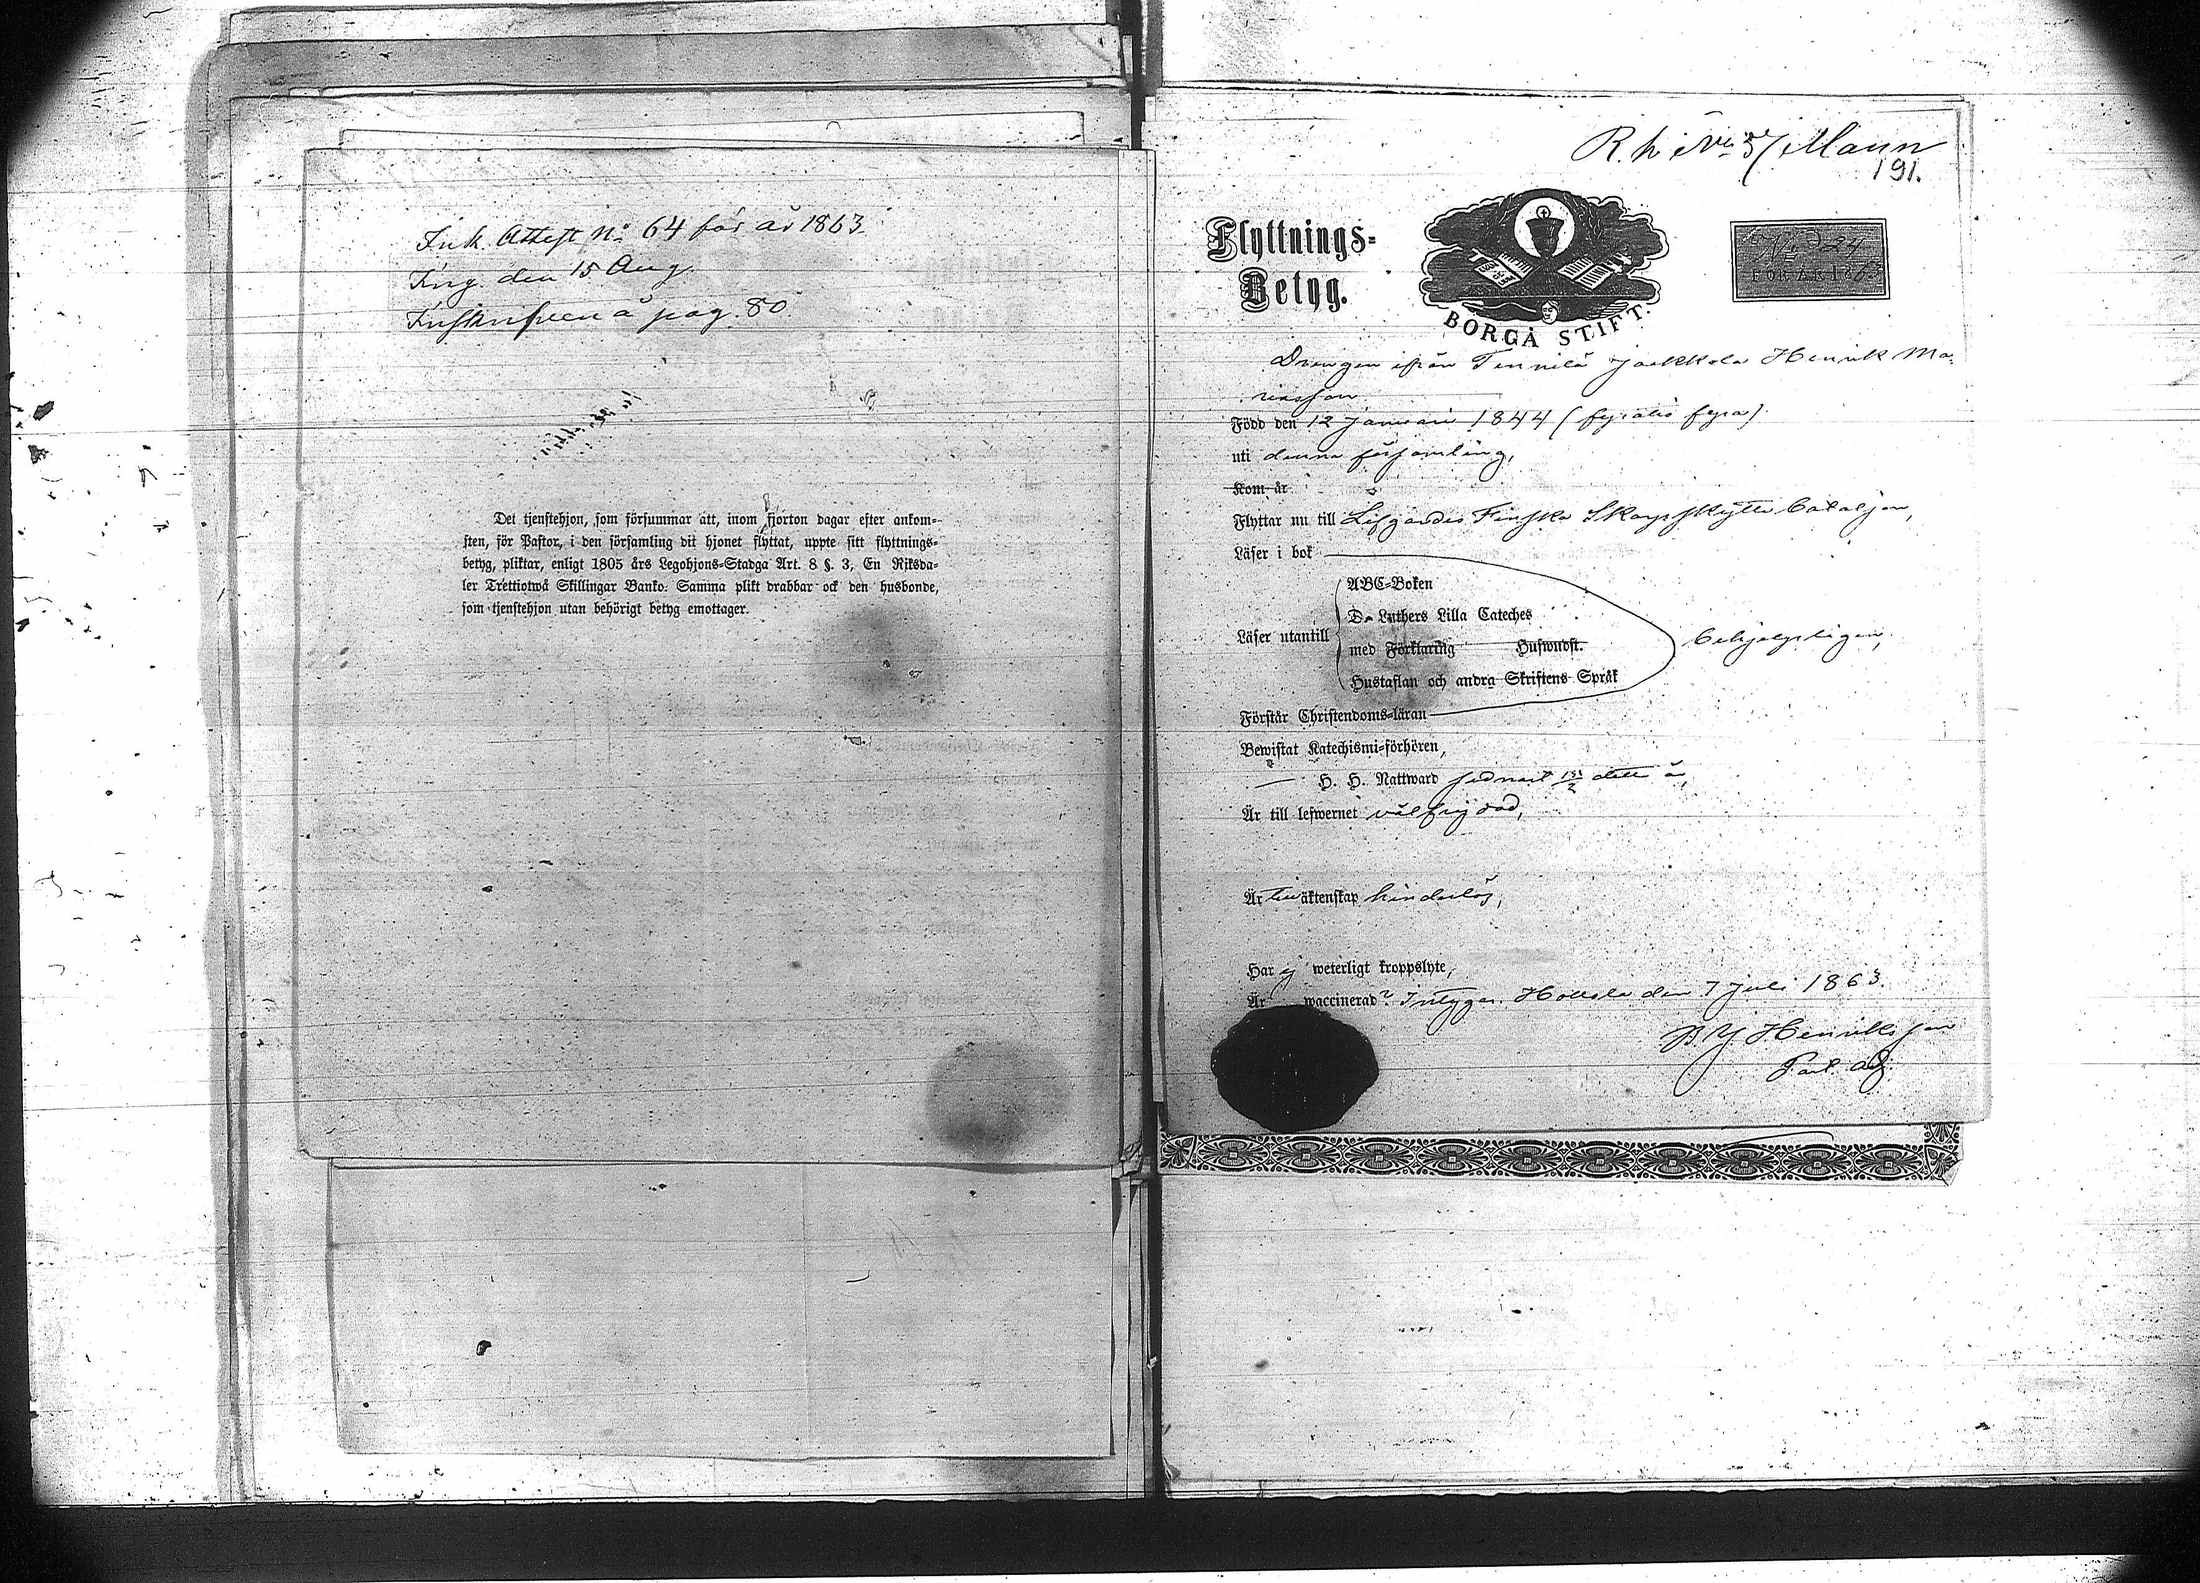 Ink. Attest No 64 för år 1863.
Ing. den 15 Aug.
Inskrifven å pag. 80.
Det tjenstehjon, som försummar att, inom fjorton dagar efter ankom-
sten, för Pastor, i den församling dit hjonet flyttat, uppte sitt flyttnings-
betyg, pliktar, enligt 1805 års Legohjons-Stadga Art. 8 §. 3, En Riksda-
ler Trettiotwå Skillingar Banko. Samma plikt drabbar ock den husbonde,
som tjenstehjon utan behörigt betyg emottager.
Mann
191.
Flyttnings-
Betyg.
BORGÅ STIFT.
No 24
FÖR ÅR 1863
Drengen ifrån Tennilä Jaakkola Henrik Ma-
Född den 12 Januari 1844 (fyratio fyra).
uti denna församling,
Kom år
Flyttar nu till Lifgardes Finska Skarpskytte bataljon,
Läser i bok
ABC-Boken
D. Luthers Lilla Cateches
Läser utantill
med Förklaring Huswudst.
behjelpligen,
Hustaflan och andra Skriftens Språk
Förstår Christendoms-läran
Bewistat Katechismi-förhören,
— H. H. Nattward sednast detta år,
Är till lefwernet välfrejdad,
Är till äktenskap hinderlös,
Har ej weterligt kroppslyte,
Är waccinerad? Intygar. Hollola den 7 Juli 1863.
Henriksson
Past. adj.